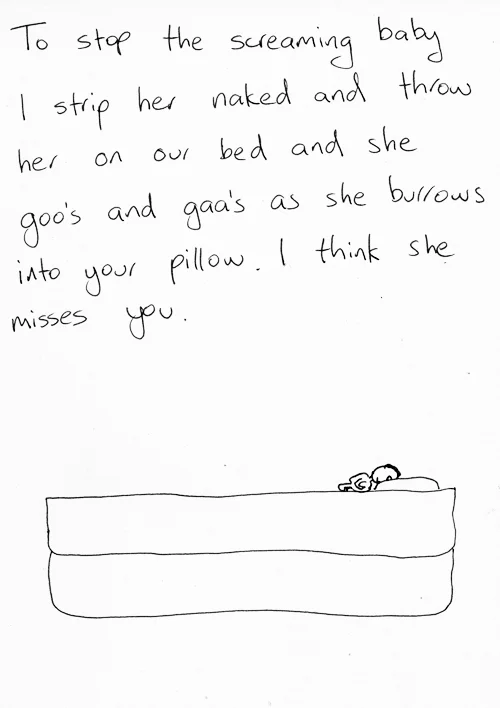 To stop the screaming baby
I strip her naked and throw
her on our bed and she
goo's and gaa's as she burrows
into your pillow. I think she
misses you.